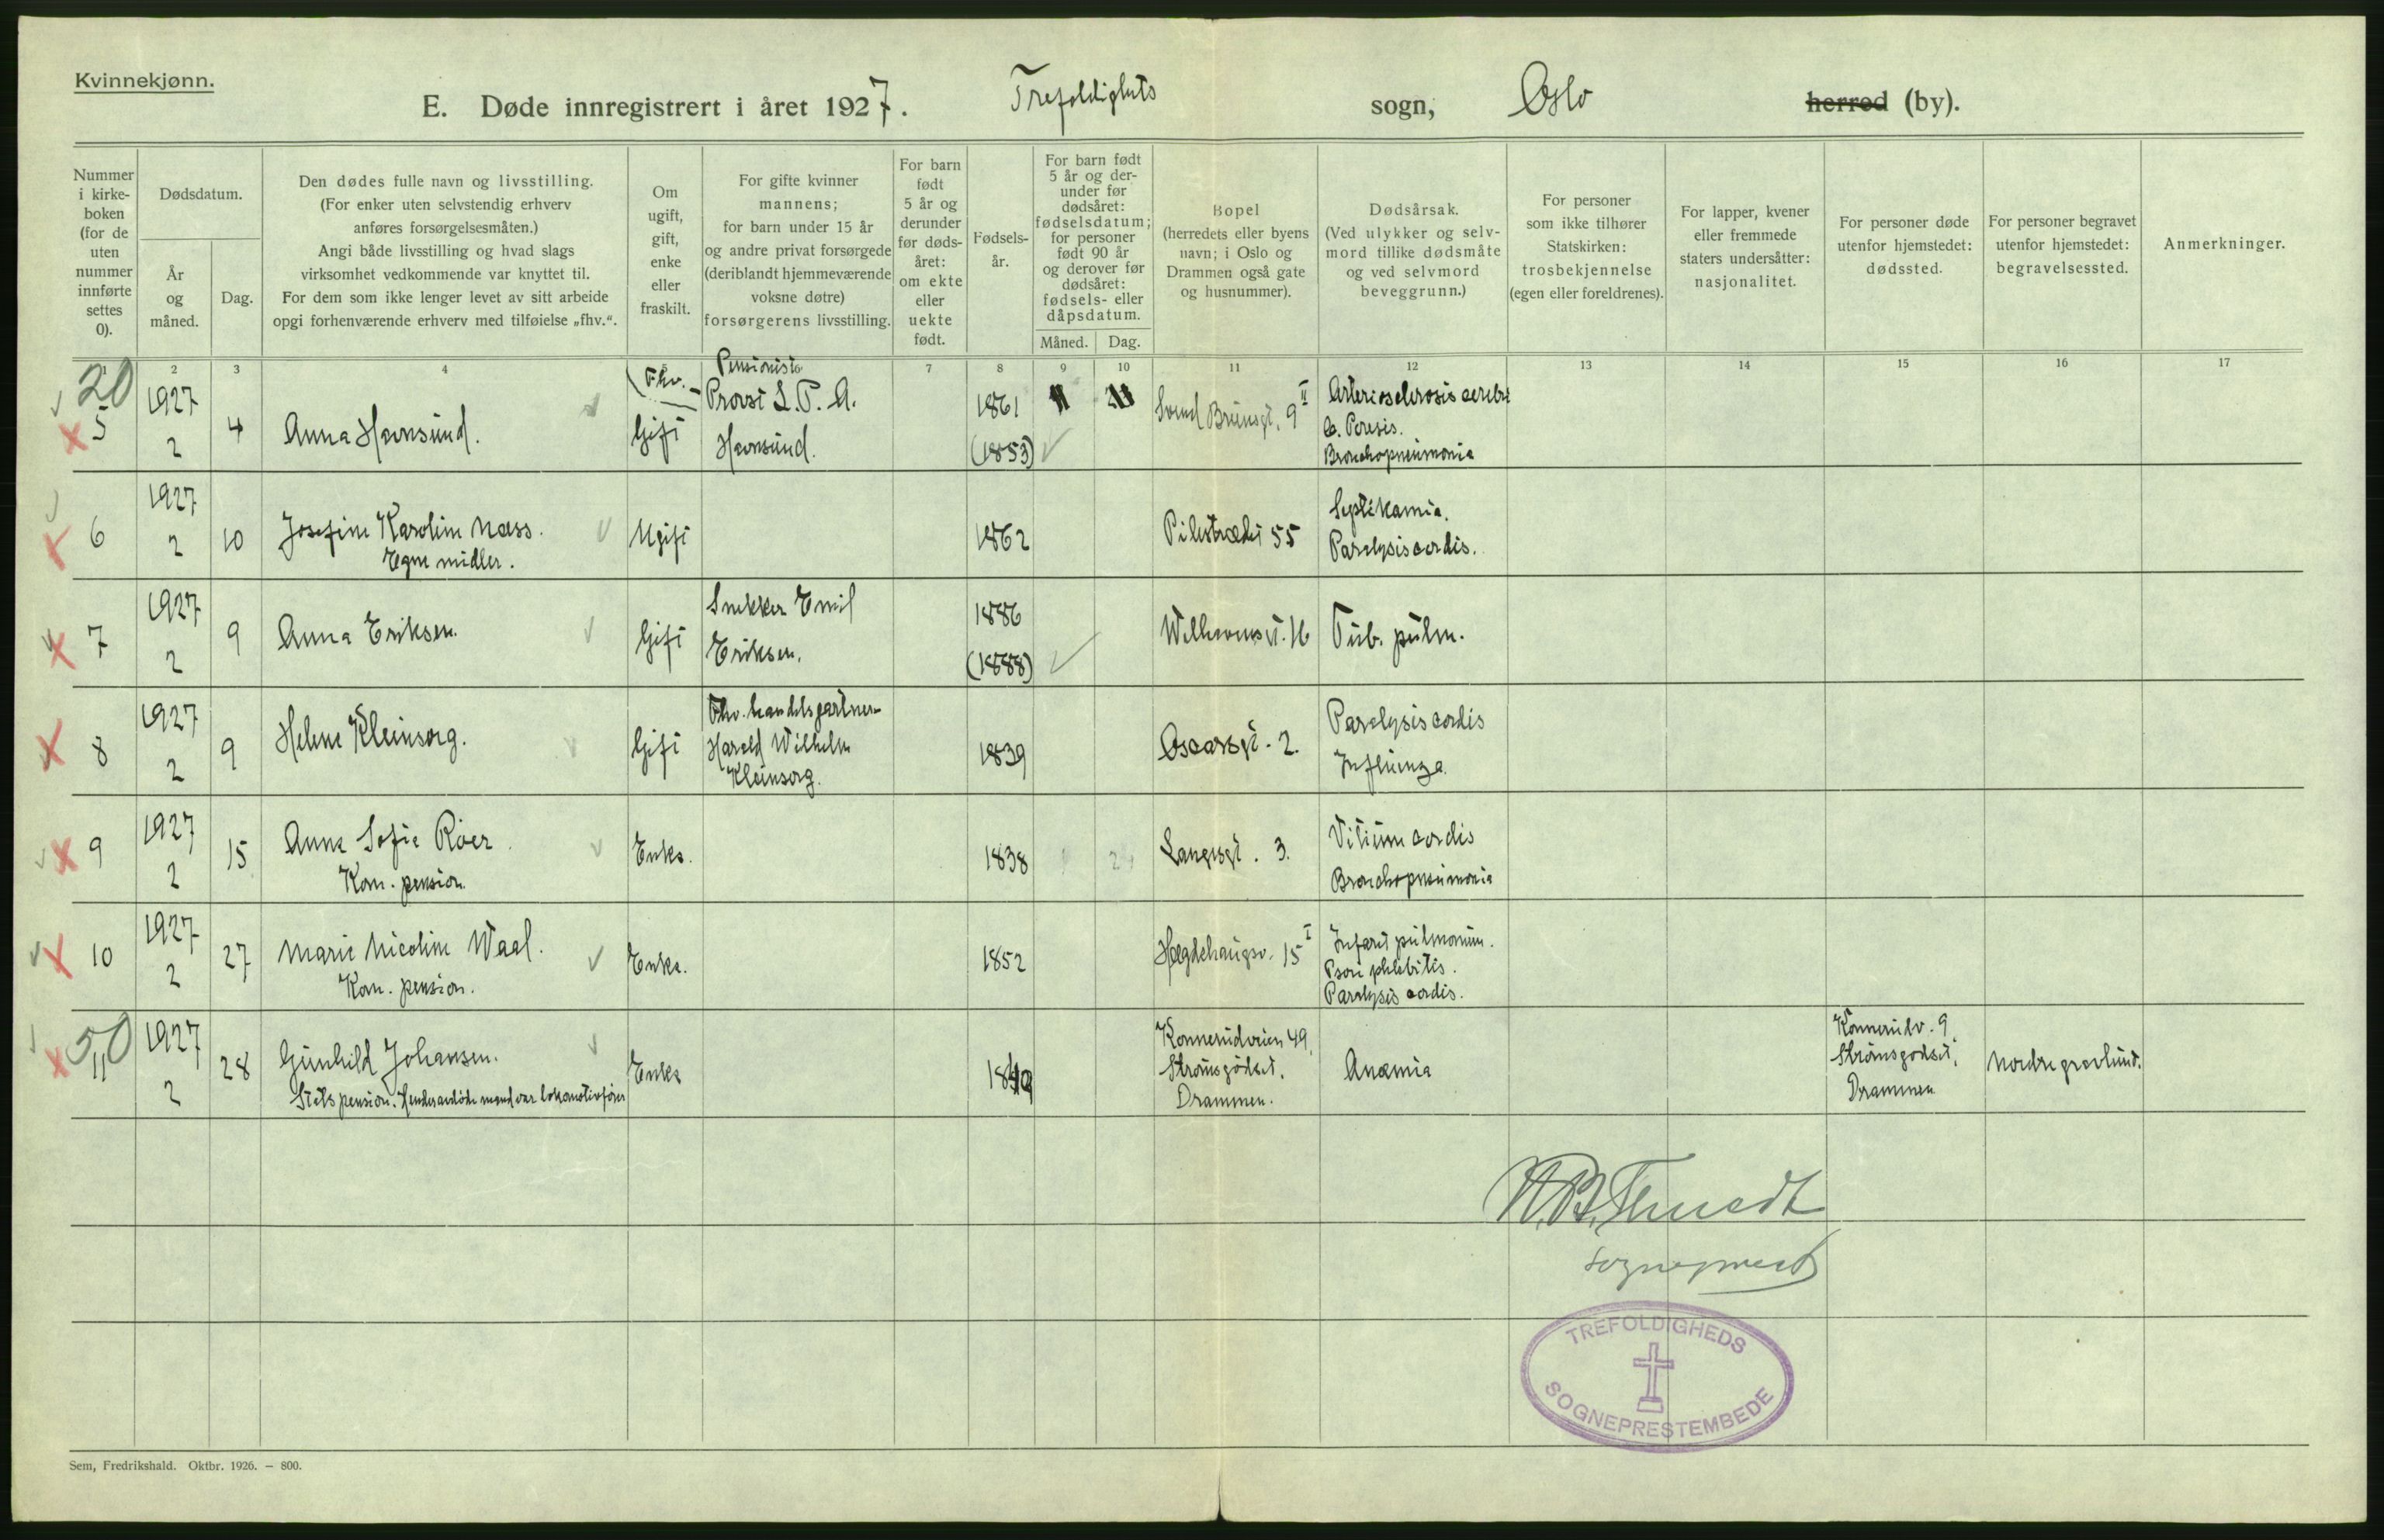 Kvinnekjønn.
E. Døde innregistrert i året 1927. Trefoldighets sogn, Oslo herred (by).
Nummer i kirke-boken (for de uten nummer innførte settes 0).
Dødsdatum.
År og måned.
Dag.
Den dødes fulle navn og livsstilling.
(For enker uten selvstendig erhverv
anføres forsørgelsesmåten.)
Angi både livsstilling og hvad slags
virksomhet vedkommende var knyttet til.
For dem som ikke lenger levet av sitt arbeide
opgi forhenværende erhverv med tilføielse „fhv.“.
Om
ugift,
gift,
enke
eller
fraskilt.
For gifte kvinner
mannens;
for barn under 15 år
og andre privat forsørgede
(deriblandt hjemmeværende
voksne døtre)
forsørgerens livsstilling.
For barn
født
5 år og
derunder
før døds-
året:
om ekte
eller
uekte
født.
Fødsels-
år.
For barn født
5 år og der-
under før
dødsåret:
fødselsdatum;
for personer
født 90 år
og derover før
dødsåret:
fødsels- eller
dåpsdatum.
Måned. Dag.
Bopel
(herredets eller byens
navn; i Oslo og
Drammen også gate
og husnummer).
Dødsårsak.
(Ved ulykker og selv-
mord tillike dødsmåte
og ved selvmord
beveggrunn.)
For personer
som ikke tilhører
Statskirken:
trosbekjennelse
(egen eller foreldrenes).
For lapper, kvener
eller fremmede
staters undersåtter:
nasjonalitet.
For personer døde
utenfor hjemstedet:
dødssted.
For personer begravet
utenfor hjemstedet:
begravelsessted.
Anmerkninger.
2 3 4 7 8 9 10 11 12 13 14 15 16 17
20
5
1927
2
4
Anna Havnsund.
Fhv.
Gift
Pensionist
Provst L. P. A.
Havnsund.
1861
(1853)
Svend Bruunsgt. 9 II
Arteriosclerosis cerebri
c. Paresis.
Bronchopneumonia
6
1927
2
10
Josefine Karoline Næss.
Egne midler.
Ugift
1862
Pilestrædet 55
Septikæmia.
Paralysis cordis.
7
1927
2
9
Anna Eriksen.
Gift
Snekker Emil
Eriksen.
1886
(1888)
Welhavensgt. 16
Tub. pulm.
8
1927
2
9
Helene Kleinsorg.
Gift
Fhv. handelsgartner
Harald Wilhelm
Kleinsorg.
1839
Oscarsgt. 2.
Paralysis cordis
Influenza.
9
1927
2
15
Anna Sofie Röer.
Kom. pension.
Enke.
1838
Langesgt. 3.
Vitium cordis
Bronchopneumonia
10
1927
2
27
Marie Nicoline Waal.
Kom. pension.
Enke.
1852
Hegdehaugsv. 15 I
Infarct pulmonum.
phlebitis.
Paralysis cordis.
50
11
1927
2
28
Gunhild Johansen.
Stats pension. Hendes avdöde mand var lokomotivförer
Enke
Konnerudveien 49,
Strömsgodset.
Drammen.
Anæmia
Konnerudv. 9,
Strömsgodset,
Drammen
Nordre gravlund.
sogneprest
TREFOLDIGHEDS
SOGNEPRESTEMBEDE
Sem, Fredrikshald. Oktbr. 1926. — 800.